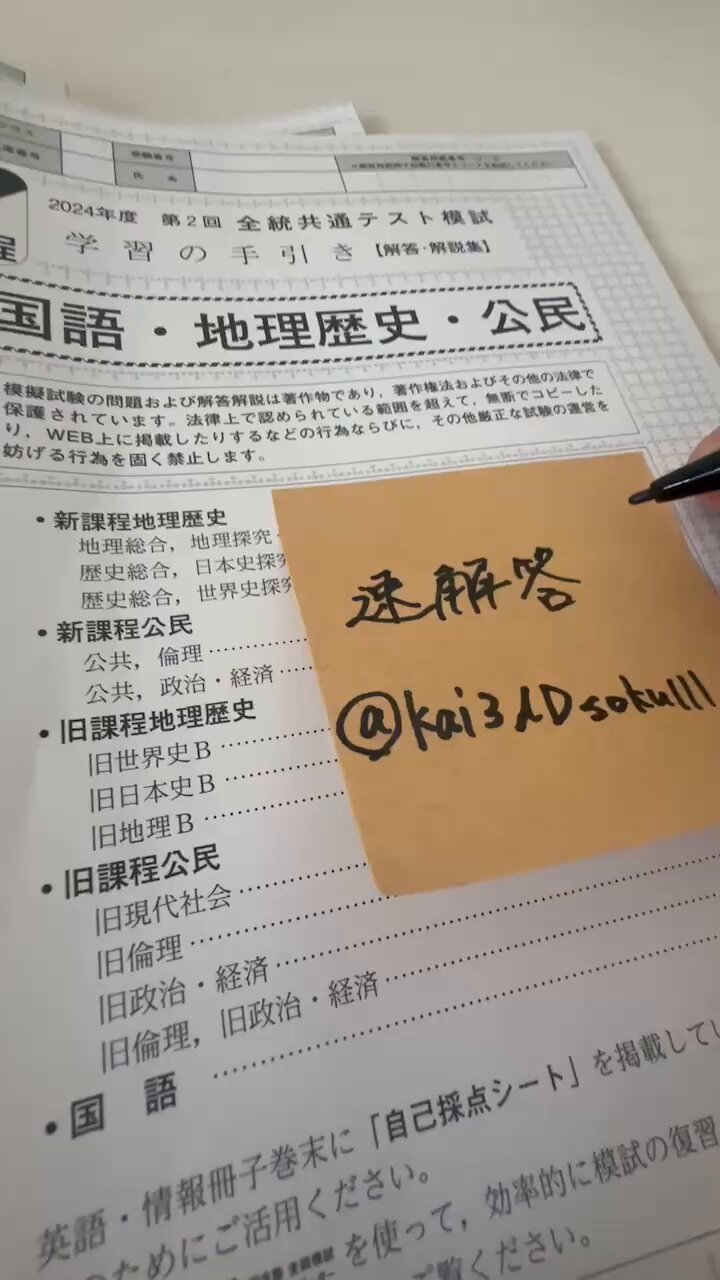 受験番号
氏 名
2024年度 第2回 全統共通テスト模試
学習の手引き【解答・解説集】
国語・地理歴史・公民
模擬試験の問題および解答解説は著作物であり，著作権法およびその他の法律で
保護されています。法律上で認められている範囲を超えて，無断でコピーした
り，WEB上に掲載したりするなどの行為ならびに，その他厳正な試験の運営を
妨げる行為を固く禁止します。
・新課程地理歴史
地理総合，地理探究
歴史総合，日本史探究
歴史総合，世界史探究
・新課程公民
公共，倫理
公共，政治・経済
・旧課程地理歴史
旧世界史B
旧日本史B
旧地理B
・旧課程公民
旧現代社会
旧倫理
旧政治・経済
旧倫理，旧政治・経済
・国 語
速解答
@kai3dDsokulll
「自己採点シート」を掲載してい
英語・情報冊子巻末に
のためにご活用ください。
を使って，効率的に模試の復習
ご覧ください。